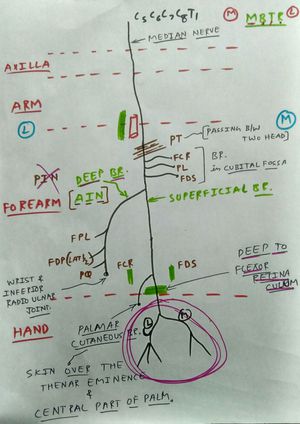 C5 C6 C7 C8 T1
M MBTR L
MEDIAN NERVE
AXILLA
ARM
L
M
PT [PASSING B/W TWO HEAD]
FCR
PL
FDS
BR. in CUBITAL FOSSA
PIN
DEEP BR.
[AIN]
FOREARM
SUPERFICIAL BR.
FPL
FDP (LAT 1/2)
PQ
FCR
FDS
WRIST &
INFERIOR
RADIO ULNAR
JOINT.
DEEP TO
FLEXOR
RETINA
CULUM
HAND
PALMAR
CUTANEOUS BR.
L
M
SKIN OVER THE
THENAR EMINENCE
&
CENTRAL PART OF PALM.